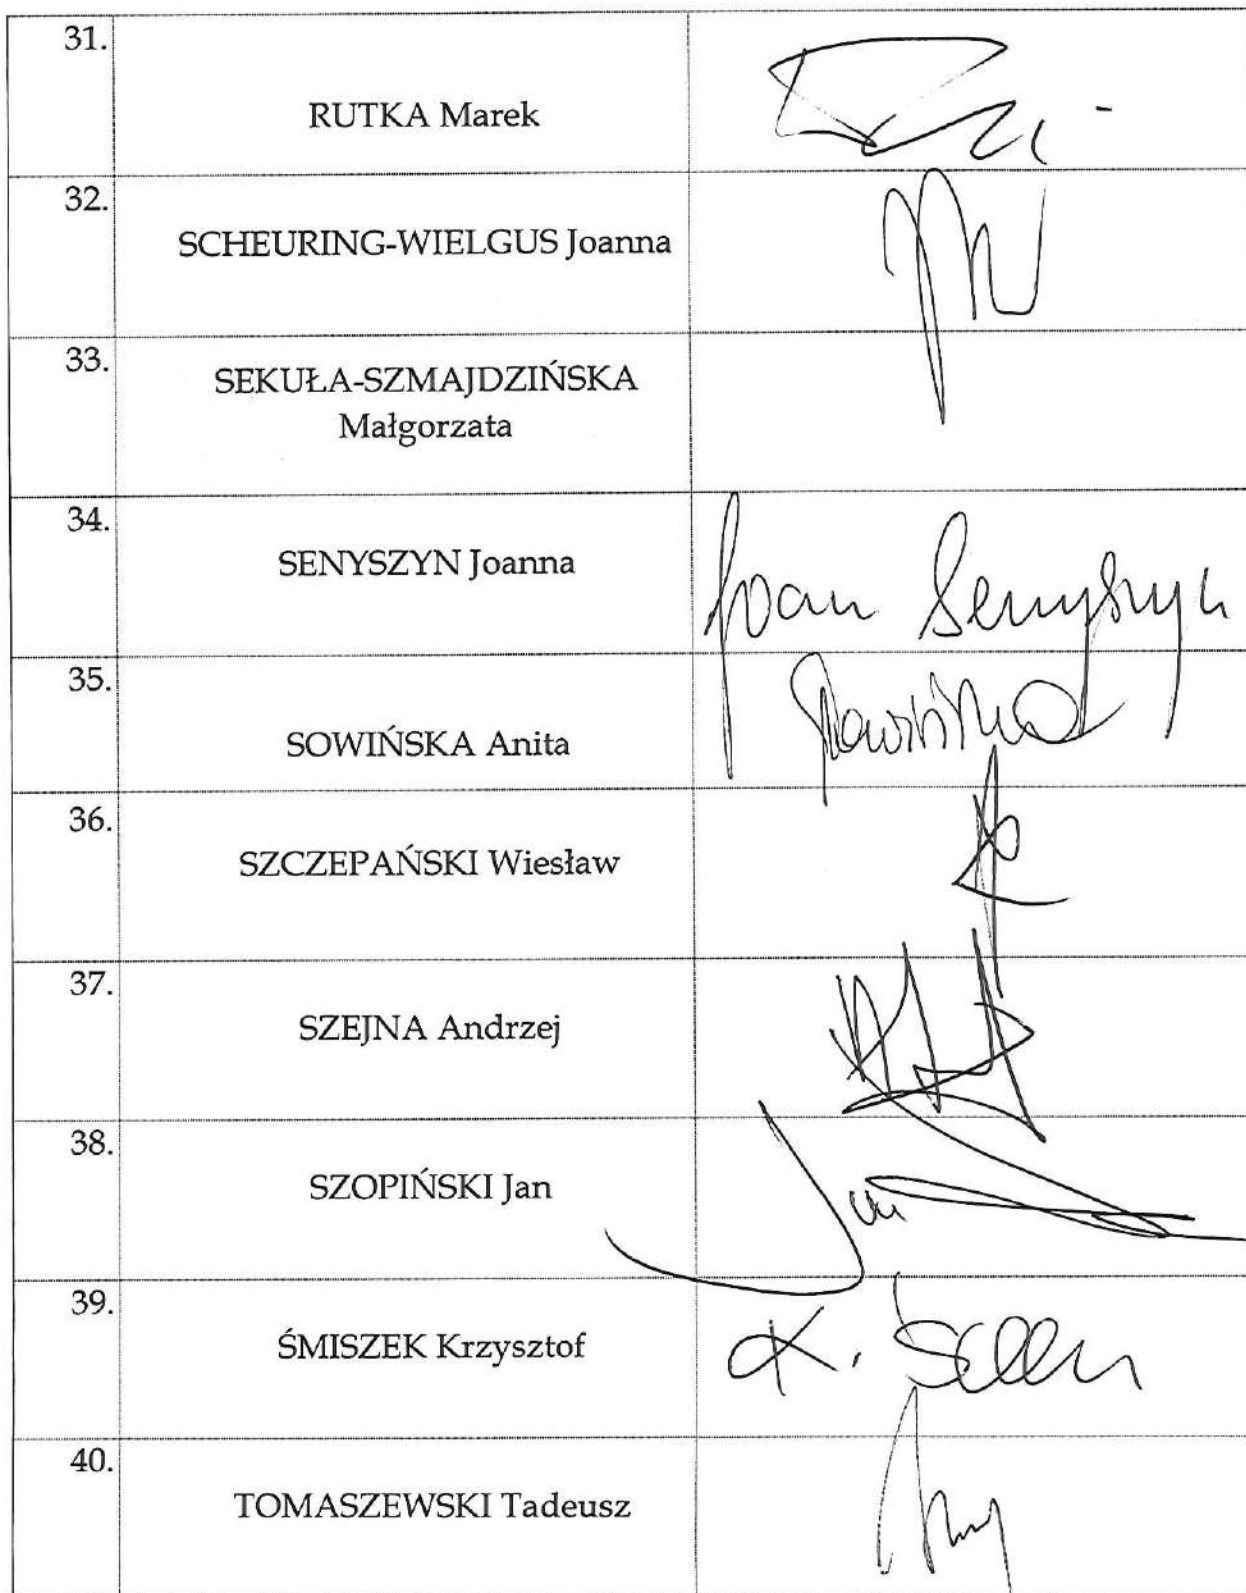 31.
RUTKA Marek
32.
SCHEURING-WIELGUS Joanna
33.
SEKUŁA-SZMAJDZIŃSKA
Małgorzata
34.
SENYSZYN Joanna
Joan Senyszyn
35.
SOWIŃSKA Anita
36.
SZCZEPAŃSKI Wiesław
37.
SZEJNA Andrzej
38.
SZOPIŃSKI Jan
39.
ŚMISZEK Krzysztof
40.
TOMASZEWSKI Tadeusz